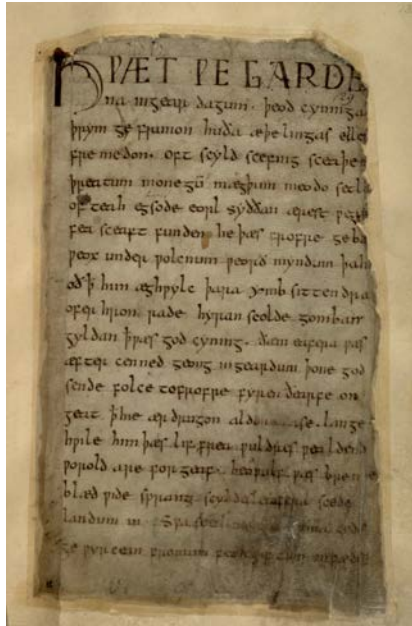 HǷÆT ǷE GARDE
na ingear dagum. þeod cyninga
þrym ge frunon huða æþelingas elle
fremedon. oft scyld scefing sceaþe
þreatum monegū mægþum meodo setla
of teah egsode eorl syððan ærest ƿear
fea sceaft funden he þæs frofre geba
ƿeox under ƿolcnum ƿeorð myndum þah
oð ꝥ him æghƿylc þara ymb sittendra
ofer hron rade hyran scolde gomban
gyldan ꝥ ƿæs god cyning. ðæm eafera ƿæs
æfter cenned geong ingeardum þone god
sende folce tofrofre fyren ðearfe on
geat ꝥ hie ær drugon aldor ase. lange
hƿile him þæs lif frea ƿuldres ƿealdend
ƿorold are for geaf. beoƿulf ƿæs breme
blæd ƿide sprang scyldes eafera scede
landum in. Sƿa sceal guma gode
ge ƿyrcean fromum feoh giftum